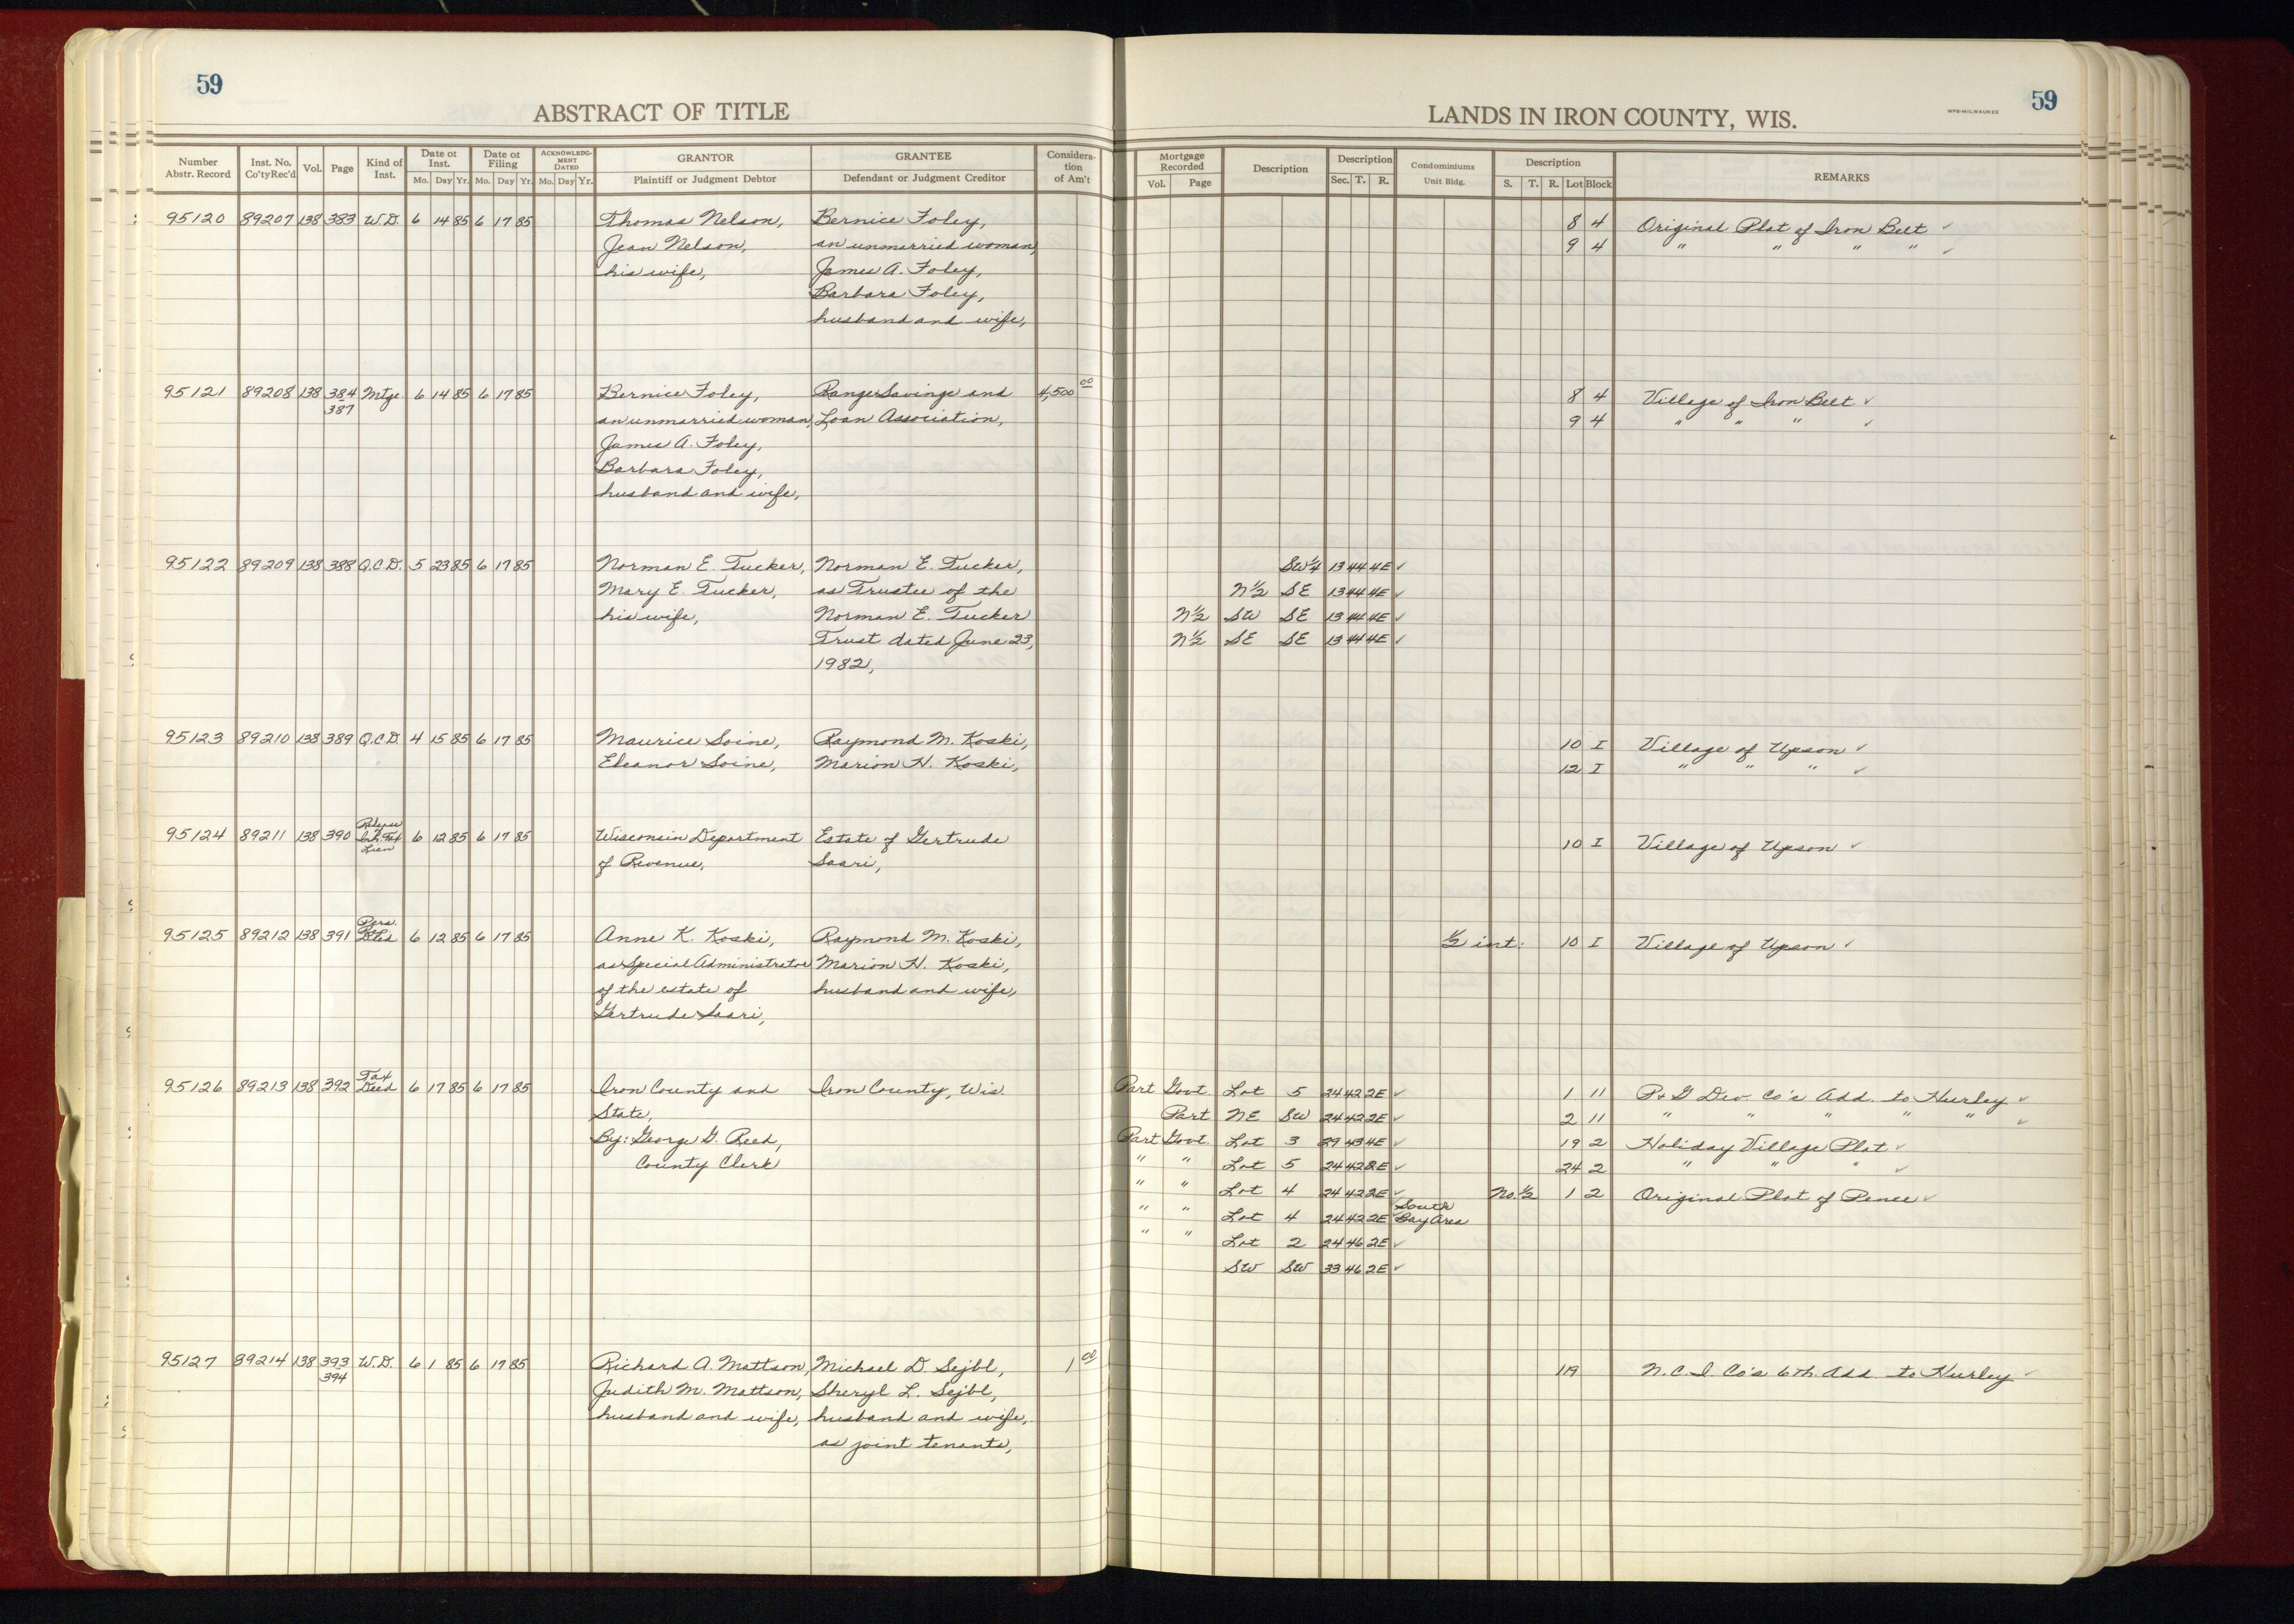 59
ABSTRACT OF TITLE
Number Abstr. Record | Inst. No. Co'ty Rec'd | Vol. | Page | Kind of Inst. | Date of Inst. Mo. Day Yr. | Date of Filing Mo. Day Yr. | ACKNOWLEDGMENT DATED Mo. Day Yr. | GRANTOR Plaintiff or Judgment Debtor | GRANTEE Defendant or Judgment Creditor | Consideration of Am't
95120 89207 138 383 W.D. 6 14 85 6 17 85 Thomas Nelson, Bernice Foley,
Jean Nelson, an unmarried woman,
his wife, James A. Foley,
Barbara Foley,
husband and wife,
95121 89208 138 384 Mtge 6 14 85 6 17 85 Bernice Foley, Range Savings and 4,500 00
387 an unmarried woman, Loan Association,
James A. Foley,
Barbara Foley,
husband and wife,
95122 89209 138 388 Q.C.D. 5 23 85 6 17 85 Norman E. Tucker, Norman E. Tucker,
Mary E. Tucker, as Trustee of the
his wife, Norman E. Tucker
Trust dated June 23,
1982,
95123 89210 138 389 Q.C.D. 4 15 85 6 17 85 Maurice Soine, Raymond M. Koski,
Eleanor Soine, Marion H. Koski,
95124 89211 138 390 Release Inh. Tax Lien 6 12 85 6 17 85 Wisconsin Department Estate of Gertrude
of Revenue, Saari,
95125 89212 138 391 Pers. Rep. Deed 6 12 85 6 17 85 Anne K. Koski, Raymond M. Koski,
as Special Administrator Marion H. Koski,
of the estate of husband and wife,
Gertrude Saari,
95126 89213 138 392 Tax Deed 6 17 85 6 17 85 Iron County and Iron County, Wis.
State,
By: George G. Reed,
County Clerk
95127 89214 138 393 W.D. 6 1 85 6 17 85 Richard A. Mattson, Michael D Sejbl, 1 00
394 Judith M. Mattson, Sheryl L. Sejbl,
husband and wife, husband and wife,
as joint tenants,
LANDS IN IRON COUNTY, WIS.
WPB-MILWAUKEE
59
Mortgage Recorded Vol. Page | Description | Description Sec. T. R. | Condominiums Unit Bldg. | Description S. T. R. Lot Block | REMARKS
8 4 Original Plat of Iron Belt ✓
9 4 " " " " ✓
8 4 Village of Iron Belt ✓
9 4 " " " ✓
SW¼ 13 44 4E ✓
N½ SE 13 44 4E ✓
N½ SW SE 13 44 4E ✓
N½ SE SE 13 44 4E ✓
10 I Village of Upson ✓
12 I " " " ✓
10 I Village of Upson ✓
½ int. 10 I Village of Upson ✓
Part Govt. Lot 5 24 42 2E ✓ 1 11 P & G Dev. Co's Add. to Hurley ✓
Part NE SW 24 42 2E ✓ 2 11 " " " " " ✓
Part Govt. Lot 3 29 43 4E ✓ 19 2 Holiday Village Plat ✓
" " Lot 5 24 42 2E ✓ 24 2 " " " ✓
" " Lot 4 24 42 2E ✓ No. ½ 1 2 Original Plat of Pence ✓
" " Lot 4 24 42 2E South Bay Area
" " Lot 2 24 46 2E ✓
SW SW 33 46 2E ✓
119 N.C.I. Co's 6th. Add. to Hurley ✓